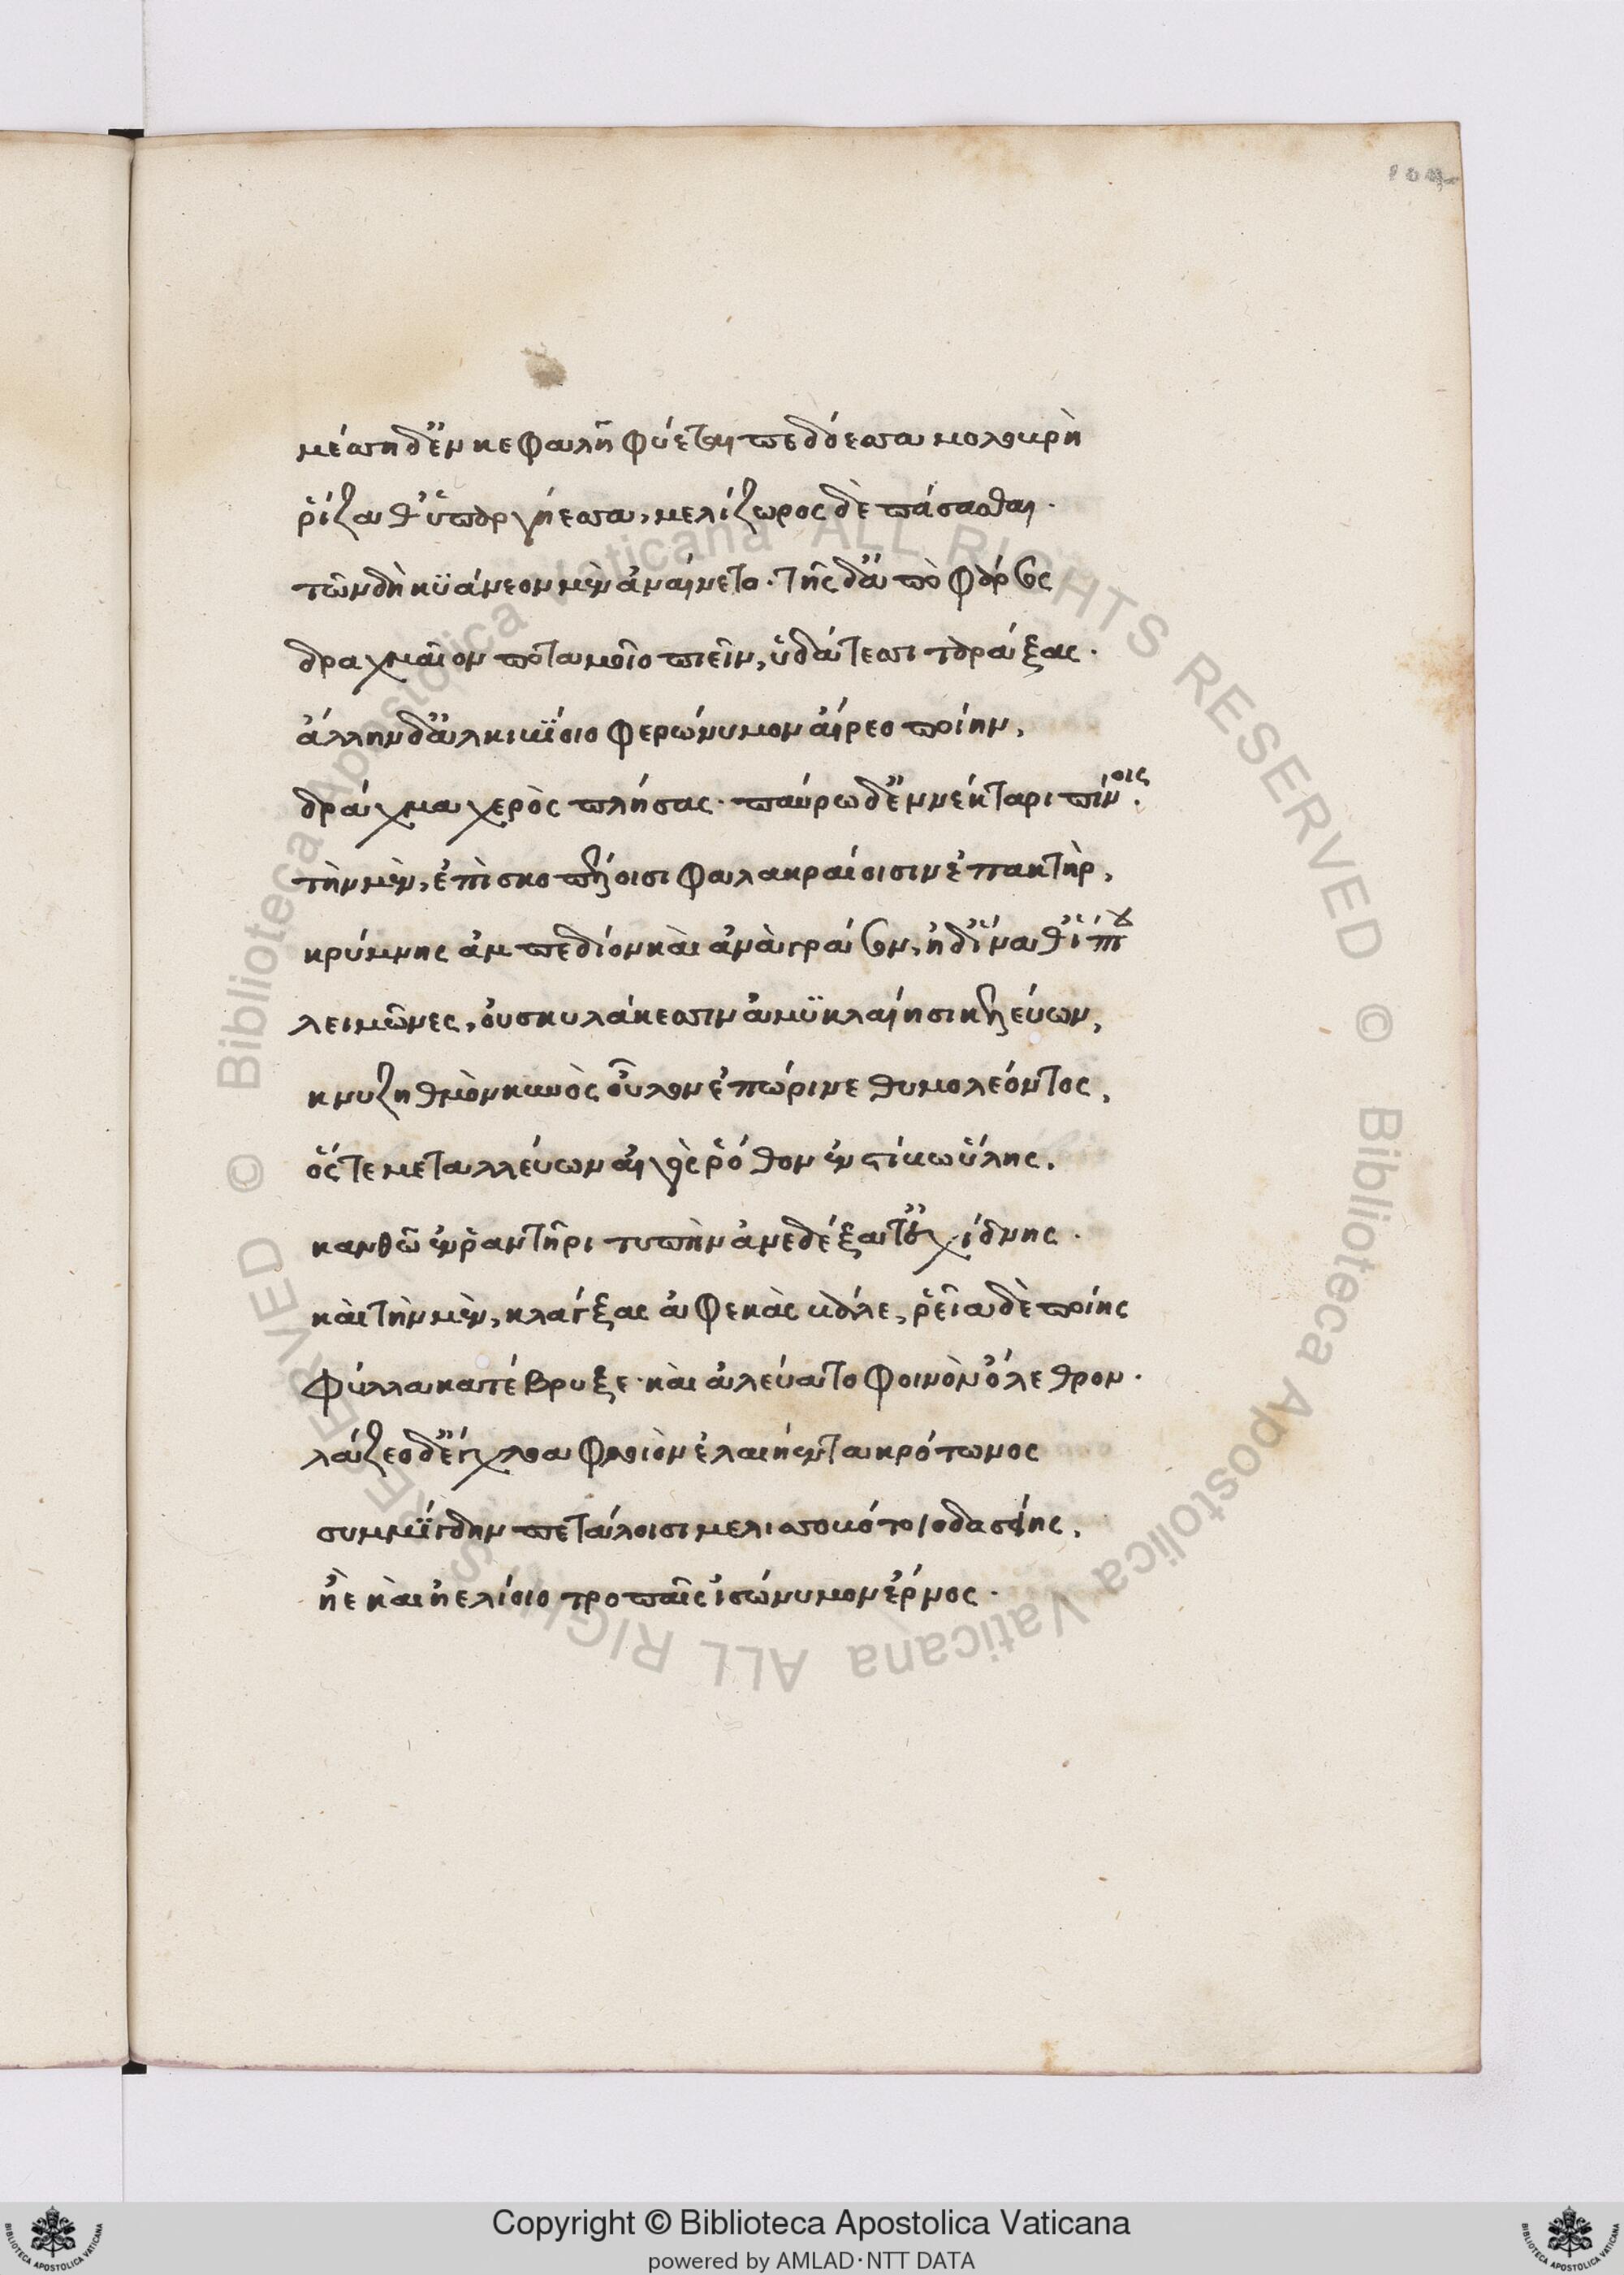 104
μέσση δ' ἐν κεφαλῇ φύεται πεδόεσσα μολοβρὴ
ῥίζα θ' ὑποργήεσσα, μελίζωρος δὲ πάσασθαι.
τῶν δὴ κϋάνεον μὲν ἀναίνετο. τῆς δ' ἀπὸ φόρβης
δραχμαῖον ποταμοῖο πιεῖν, ὑδάτεσσι ταράξας.
ἄλλην δ' ἀλκιβΐοιο φερώνυμον αἵρεο ποίην,
δράχμα χερὸς πλήσας. παύρω δ' ἐν νέκταρι πίνοις.
τὴν μὲν, ἐπὶ σκοπέλοισι φαλακραίοισιν ἐπακτὴρ,
κρύμνης ἀμ πεδίον καὶ ἀνὰ γράσον, ἠδ' ἵνα θ' ἵππου
λειμῶνες, οὐ σκυλάκεσσιν ἀμϋκλαίησι κελεύων,
κνυζηθμὸν κυνὸς οὔλον ἐπώρινε θυμολέοντος,
ὅς τε μεταλλεύων αἰγὸς ῥόθον ἐν στίβω ὕλης,
κανθῶ ἐν ῥαντῆρι τυπὴν ἀνεδέξατ' ἐχίδνης.
καὶ τὴν μὲν, κλάγξας ἀφ' ἑκὰς βάλε, ῥεῖα δὲ ποίης
φύλλα κατέβρυξε. καὶ ἀλεύατο φοινὸν ὄλεθρον.
λάζεο δ' ἔγχλοα φλοιὸν ἐλαιήεντα κρότωνος
συμμΐγδην πετάλοισι μελισσοβότοιο δασείης,
ἠὲ καὶ ἠελίοιο τροπαῖς ἰσώνυμον ἔρνος.
Copyright © Biblioteca Apostolica Vaticana
powered by AMLAD·NTT DATA